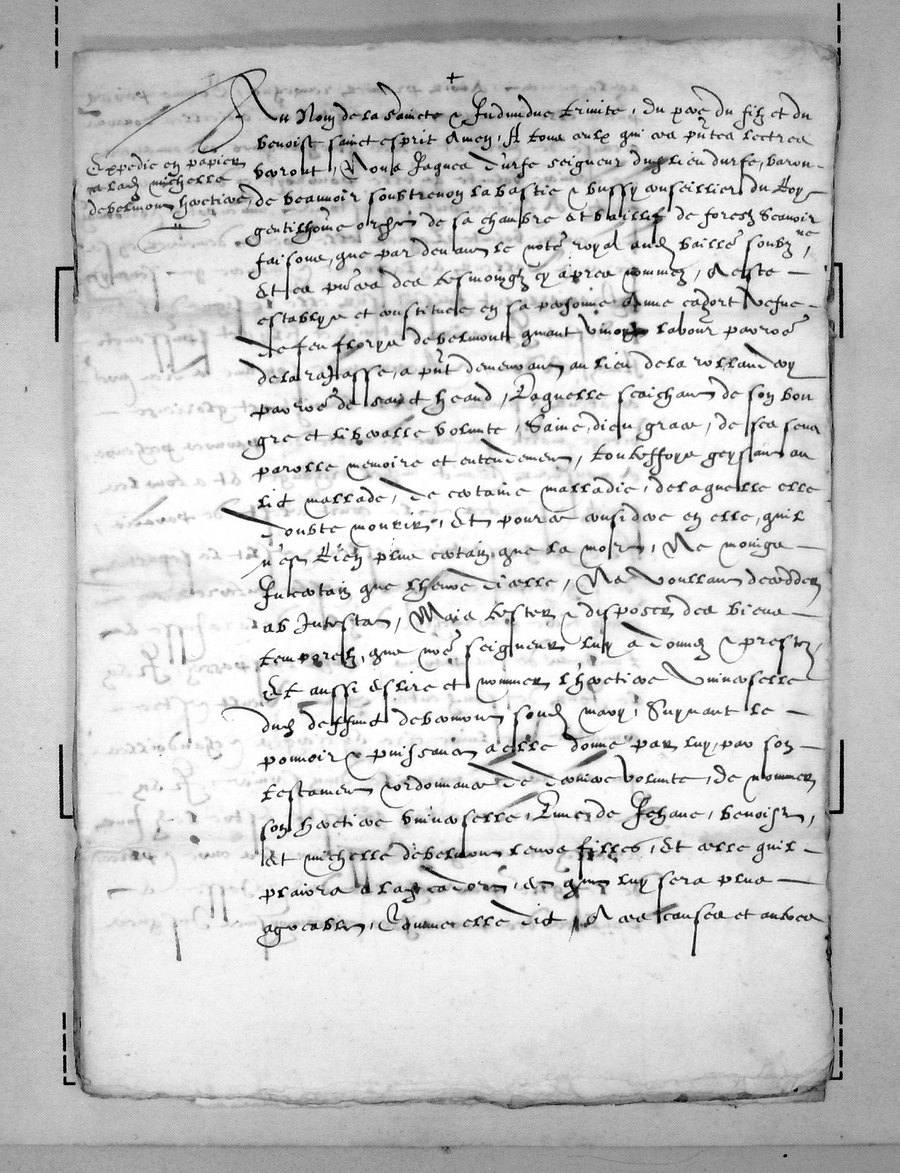 +
Au Nom de la saincte & Individue trinite, du pere du filz et du
benoist sainct esprit Amen, A tous ceulx qui ces pntes lectres
verront, Nous Jaques Durfe seigneur dud lieu durfe, baron
Expedie en papier
a lad michelle
debelmon heretiere
de beauvoir soubtrenon la bastie & bussy conseillier du Roy
gentilhome orden de sa chambre et bailly de forestz Scavoir
faisons, que par devant le note royal aud bailliè soubzne,
Et es pnces des tesmoingz cy apres nommez, A este
establye et constituee en sa personne Anne vefve
de feu florys debelmont quant vivoyt labour parroe
de la rajasse, a pnt demeurant au lieu de la rollandey
parroe de sainct heand, Laquelle saichant de son bon
gre et liberalle volunte, Saine, dieu grace, de ses sens
parolle memoire et entendement, touteffoys geysant au
lict mallade, de certaine malladie, de laquelle elle
doubte mourir, Et pource considere en elle, quil
n'est Rien plus certain que la mort, Ne moings
Incertain que lheure dicelle, Ne voullant decedder
ab Intestat, Mais tester & disposer des biens
temporelz, que nre seigneur luy a donnez & prestez,
Et aussi eslire et nommer l'heretiere universelle
dud deffunct debelmon sond mary, Suyvant le
pouvoir & puissance a elle donne par luy, par son
testament & ordonnance de derniere volunte, de nommer
son heretiere universelle, Lune de Jehane, benoiste,
et michelle debelmon leurs filles, Et celle quil
plairra a lad, et quy luy sera plus
agreable, Comme elle dict, A ces causes et autres